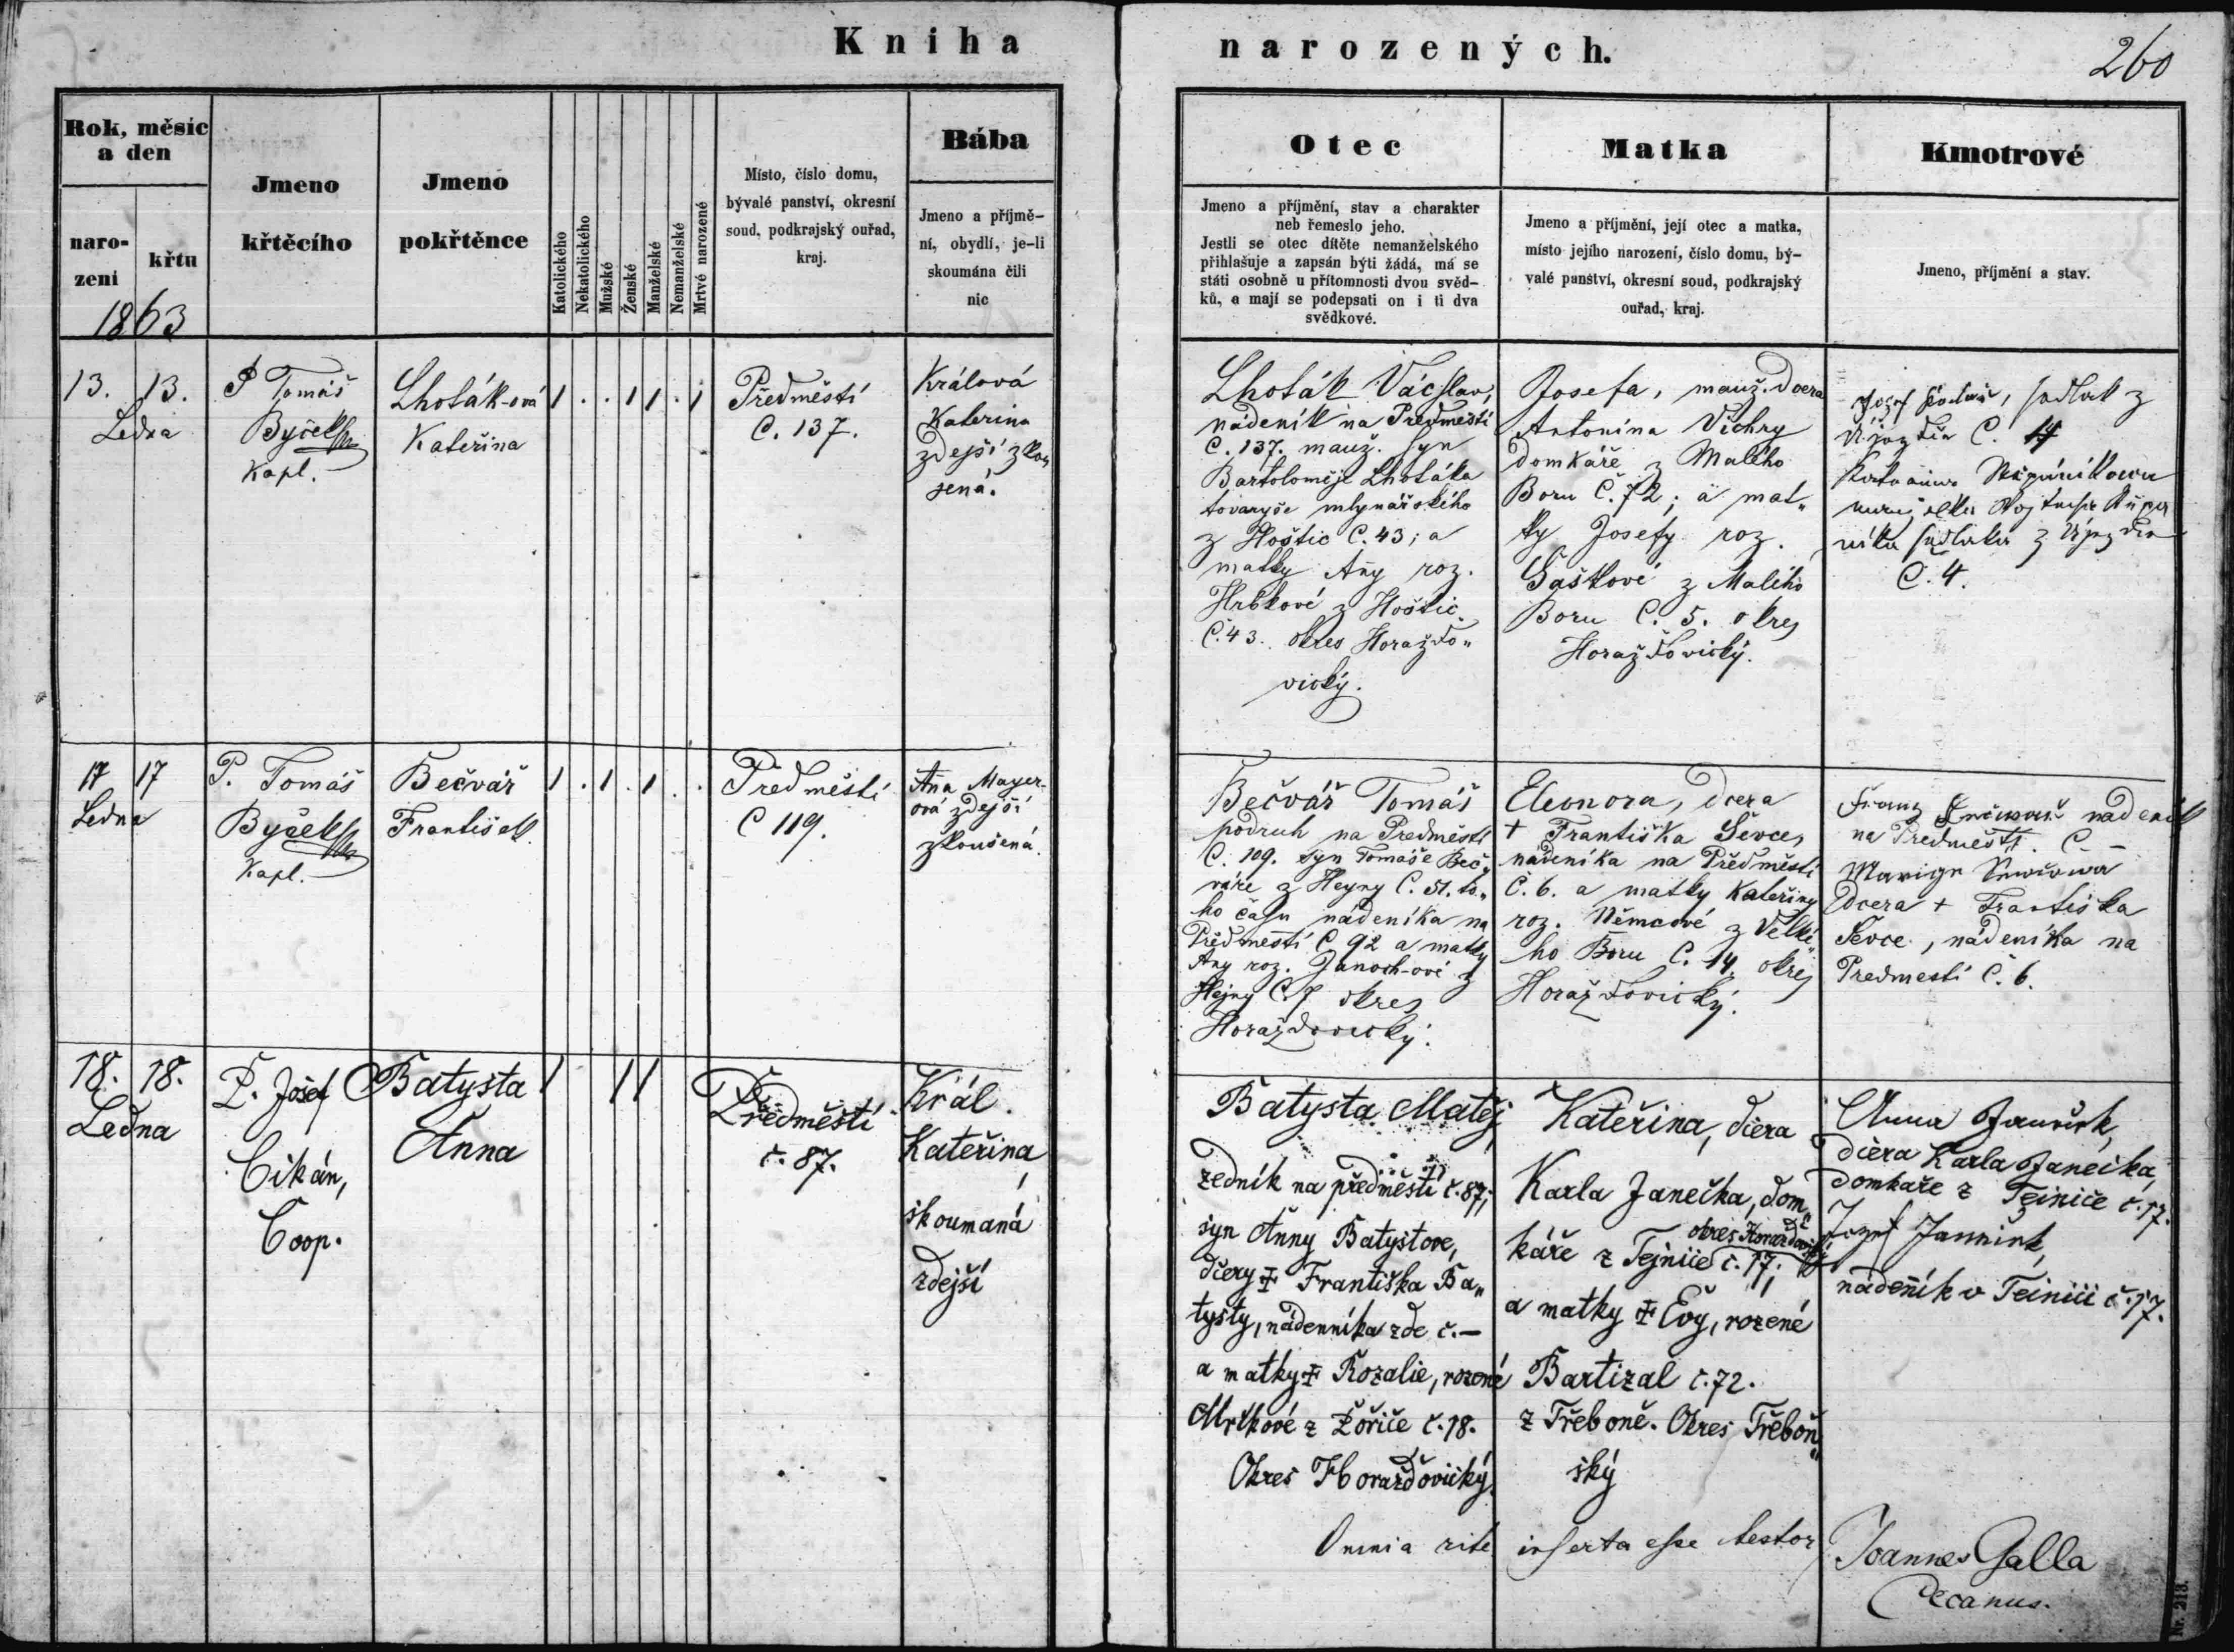 Kniha narozených.
260
Rok, měsíc a den
naro-
zení
křtu
1863
Jmeno
křtěcího
Jmeno
pokřtěnce
Katolického
Nekatolického
Mužské
Ženské
Manželské
Nemanželské
Mrtvé narozené
Místo, číslo domu,
bývalé panství, okresní
soud, podkrajský ouřad,
kraj.
Bába
Jmeno a příjmě-
ní, obydlí, je-li
skoumána čili
nic
Otec
Jmeno a příjmění, stav a charakter
neb řemeslo jeho.
Jestli se otec dítěte nemanželského
přihlašuje a zapsán býti žádá, má se
státi osobně u přítomnosti dvou svěd-
ků, a mají se podepsati on i ti dva
svědkové.
Matka
Jmeno a příjmění, její otec a matka,
místo jejího narození, číslo domu, bý-
valé panství, okresní soud, podkrajský
ouřad, kraj.
Kmotrové
Jmeno, příjmění a stav.
13. 13.
Ledna
P Tomáš
Byček
Kapl.
Lhoták-ová
Kateřina
1 . . 1 1 . 1
Předměstí
C. 137.
Králová
Katerina
zdejší zkou
šená.
Lhoták Václav,
nádeník na Předměstí
C. 137. manž. syn
Bartoloměje Lhotáka
tovaryše mlynářského
z Hoštic C. 43; a
matky Any roz.
Hrbkové z Hoštic
Č. 43. okres Horažďo„
vický.
Josefa, manž. dcera
Antonína Vichry
domkáře z Malého
Boru Č. 72; a mat„
ky Josefy roz.
Gaškové z Malého
Boru C. 5. okres
Horažďovický.
Josef, sadlak z
Újezdce C. 14
sadlaka z Újezdce
C. 4.
17 17
Ledna
P. Tomáš
Byček
Kapl.
Bečvář
František
1 . 1 . 1 . .
Předměstí
C 119.
Ana Mayer-
ová zdejší
zkoušená.
Bečvář Tomáš
podruh na Předměstí
C. 109. syn Tomáše Beč„
váře z Hejny C. 51. to„
ho času nádeníka na
Předměstí C 92 a matky
Any roz. Janoch-ové z
Hejny C. 7 okres
Horažďovický.
Eleonora, dcera
+ Františka Ševce,
nádeníka na Předměstí
Č. 6. a matky Kateřiny
roz. Němcové z Velké„
ho Boru C. 14. okres
Horažďovický.
Franz nádeník
na Předměstí. C –
dcera + Františka
Ševce, nádeníka na
Předmestí Č. 6.
18. 18.
Ledna
P. Josef
Cikán,
Coop.
Batysta
Anna
1 1 1
Předměstí
č. 87.
Král.
Kateřina,
skoumaná
zdejší
Batysta Matěj,
zedník na předměstí č. 87;
syn Anny Batystove,
dcery ‡ Františka Ba„
tysty, nádenníka zde č. –
a matky ‡ Rozalie, rozené
Mrtkové z Pořiče č. 18.
Okres Horažďovický.
Kateřina, dcera
Karla Janečka, dom„
okres Horažďovický
káře z Tejnice č. 17;
a matky ‡ Evy, rozené
Bartizal č. 72.
z Třeboně. Okres Třeboň„
ský
Anna Janeček,
dcera Karla Janečka,
domkaře z Tejnice č. 17.
Jozef Janeček,
nádeník v Tejnici č. 17.
Omnia rite inserta esse testor
Joannes Galla
Decanus.
Nr. 213.